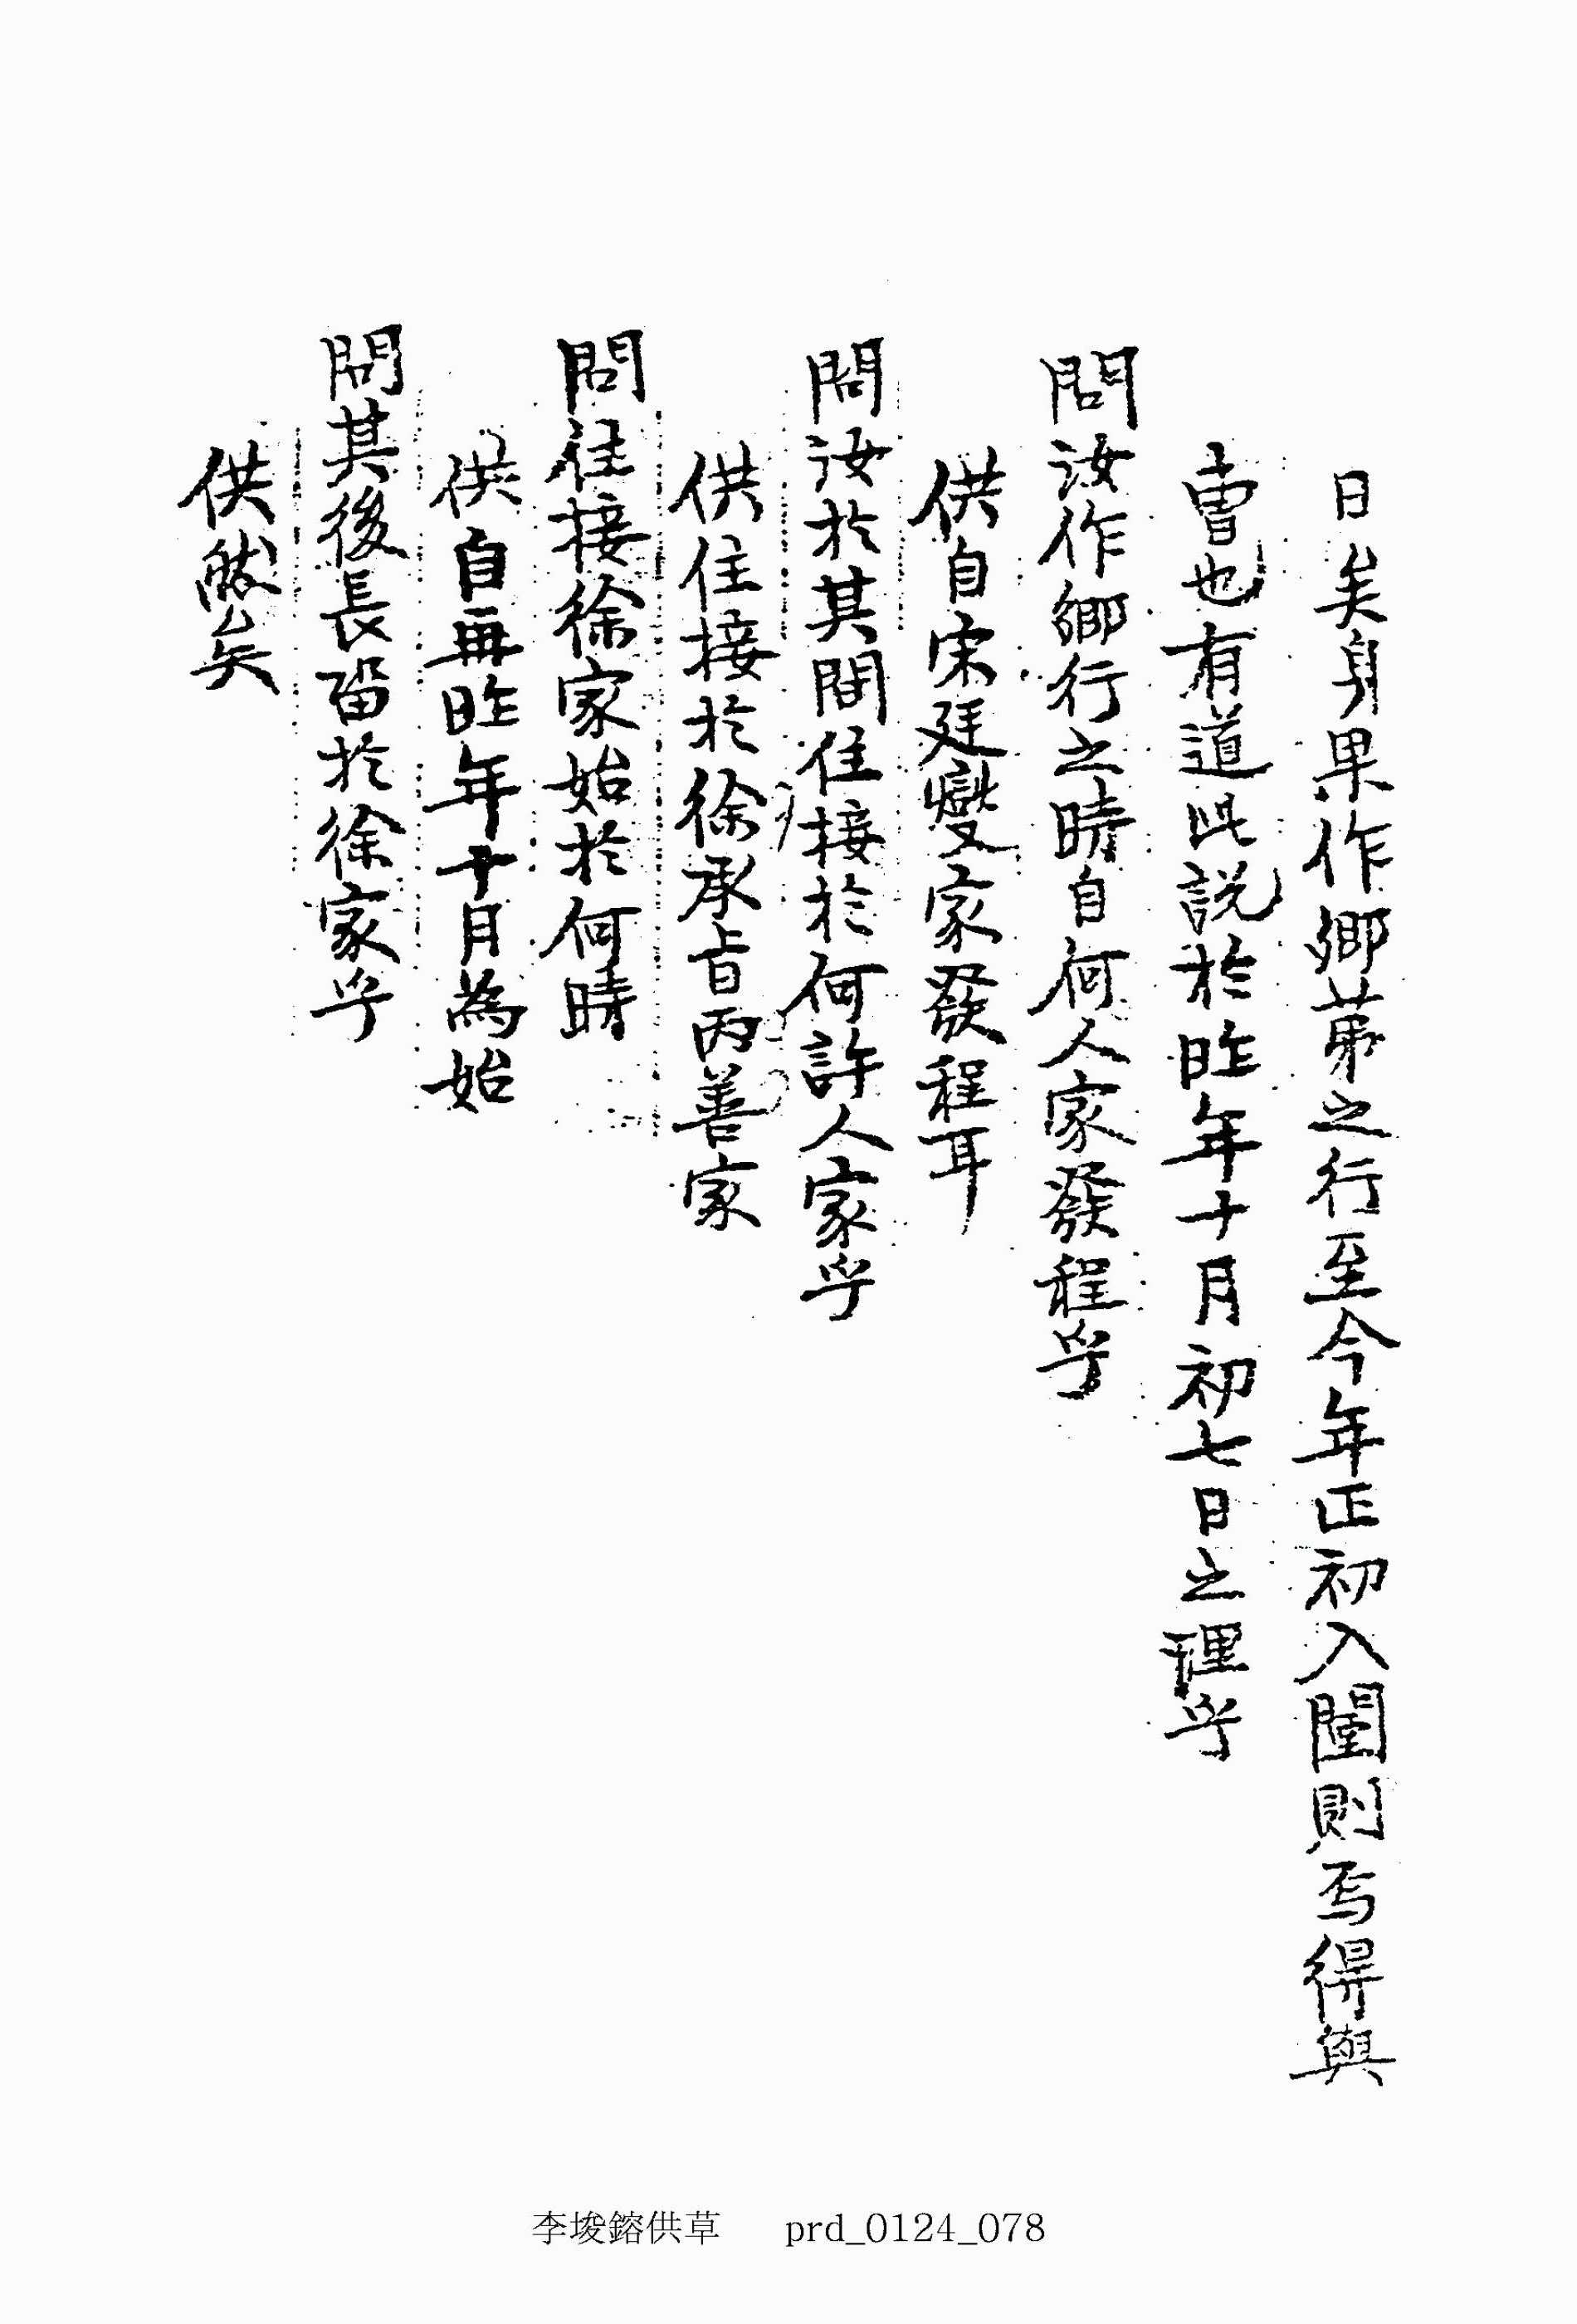 日矣身果作鄕第之行至今年正初入闉則焉得與
曺也有道此說於昨年十月初七日之理乎
問汝作鄕行之時自何人家發程乎
供自宋廷燮家發程耳
問汝於其間住接於何許人家乎
供住接於徐承旨丙善家
問住接徐家始於何時
供自再昨年十月爲始
問其後長留於徐家乎
供然矣
李埈鎔供草 prd_0124_078